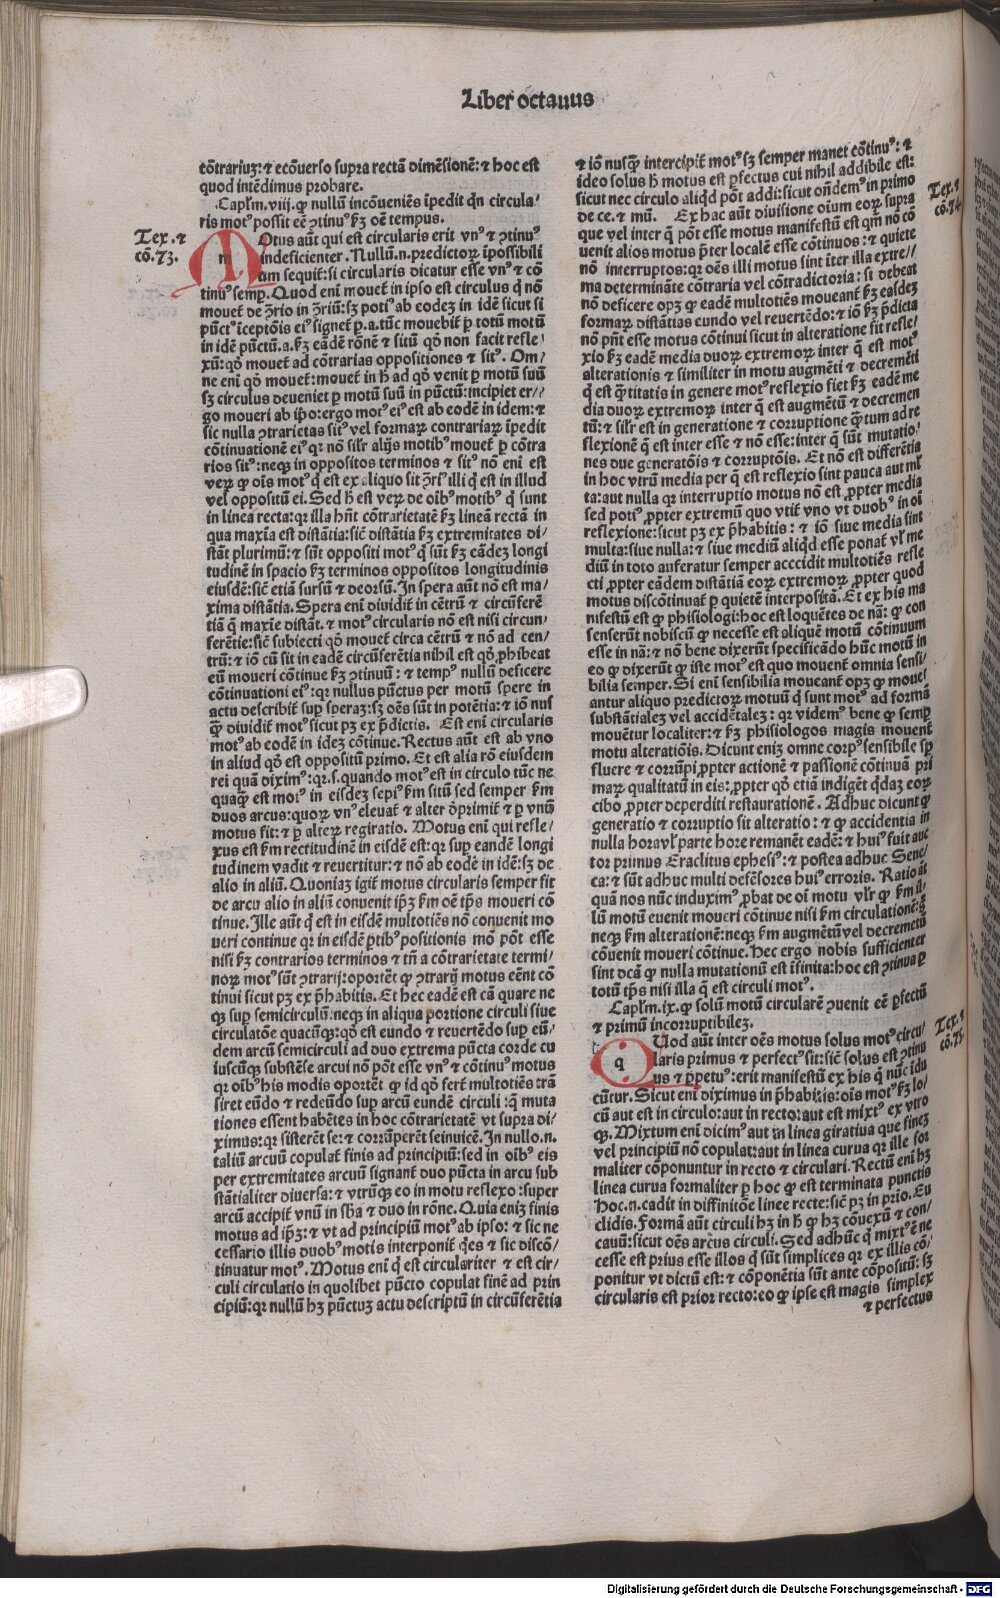 Liber octauus
cõtrariuʒ: ⁊ ecõuerso supra rectã dimẽsionẽ: ⁊ hoc est
quod intẽdimus probare.
Caplm̃. viij. ꝙ nullũ incõueniẽs ĩpedit qñ circula⸗
ris motꝰ possit eẽ ꝯtinuꝰ ẜm oẽ tempus.
Tex. ⁊
cõ. 73.
MOtus aũt qui est circularis erit vnꝰ ⁊ ꝯtinuꝰ
indeficienter. Nullũ .n. predictoꝝ ĩpossibili
um sequit̃: si circularis dicatur esse vnꝰ ⁊ cõ
tinuꝰ semꝑ. Quod eni mouet̃ in ipso est circulus q̃ nõ
mouet̃ de ꝯ̃rio in ꝯ̃riũ: sʒ potiꝰ ab eodeʒ in idẽ sicut si
in idẽ pũctũ .a. ẜm eãdẽ rõnẽ ⁊ sitũ qð non facit refle⸗
xũ: qð mouet̃ ad cõtrarias oppositiones ⁊ sitꝰ. Om⸗
ne eni qð mouet̃: mouet̃ in h̃ ad qð venit ꝑ motũ suũ
sʒ circulus deueniet ꝑ motũ suũ in pũctũ: incipiet er⸗
go moueri ab ipo: ergo motꝰ eiꝰ est ab eodẽ in idem: ⁊
sic nulla ꝯtrarietas sitꝰ vel formaꝝ contrariaꝝ ĩpedit
continuationẽ eiꝰ qꝛ nõ silr̃ alijs motibꝰ mouet̃ ꝑ cõtra
rios sitꝰ: neqʒ in oppositos terminos ⁊ sitꝰ nõ eni est
veꝝ ꝙ oĩs motꝰ q̃ est ex aliquo sit ꝯ̃riꝰ illi q̃ est in illud
vel oppositũ ei. Sed h̃ est veꝝ de oĩbꝰ motibꝰ q̃ sunt
in linea recta: qꝛ illa hñt cõtrarietatẽ ẜm lineã rectã in
qua maxĩa est distãtia: sic̃ distãtia ẜm extremitates di⸗
stãt plurimũ: ⁊ sũt oppositi motꝰ q̃ sũt ẜm eãdeʒ longi
tudinẽ in spacio ẜm terminos oppositos longitudinis
eiusdẽ: sic̃ etiã sursũ ⁊ deorsũ. In spera aũt nõ est ma⸗
xima distãtia. Spera eni diuidit̃ in cẽtrũ ⁊ circũferẽ
tiã q̃ maxĩe distãt. ⁊ motꝰ circularis nõ est nisi circum⸗
ferẽtie: sic̃ subiecti qð mouet̃ circa cẽtrũ ⁊ nõ ad cen⸗
trũ: ⁊ iõ cũ sit in eadẽ circũferẽtia nihil est qð ꝓhibeat
eũ moueri cõtinue ẜm ꝯtinuũ: ⁊ tempꝰ nullũ deficere
cõtinuationi eiꝰ: qꝛ nullus pũctus per motũ spere in
actu describit̃ sup speraʒ: sʒ oẽs sũt in potẽtia: ⁊ iõ nus
q̃ diuidit̃ motꝰ sicut pʒ ex p̃dictis. Est eni circularis
motꝰ ab eodẽ in ideʒ cõtinue. Rectus aũt est ab vno
in aliud qð est oppositũ primo. Et est alia rõ eiusdem
rei quã diximꝰ: qꝛ .s. quando motꝰ est in circulo tũc ne
quaqʒ est motꝰ in eisdeʒ sepiꝰ ẜm sitũ sed semper ẜm
duos arcus: quoꝝ vnꝰ eleuat̃ ⁊ alter õprimit̃ ⁊ ꝑ vnũ
motus fit: ⁊ ꝑ alteꝝ regiratio. Motus eni qui refle⸗
xus est ẜm rectitudinẽ in eisdẽ est: qꝛ sup eandẽ longi
tudinem vadit ⁊ reuertitur: ⁊ nõ ab eodẽ in idẽ: sʒ de
alio in aliũ. Quoniaʒ igit̃ motus circularis semper fit
de arcu alio in aliũ conuenit ip̃ʒ ẜm oẽ tp̃s moueri cõ
tinue. Ille aũt q̃ est in eisdẽ multotiẽs nõ conuenit mo
ueri continue qꝛ in eisdẽ ꝑtibꝰ positionis mõ põt esse
nisi ẜm contrarios terminos ⁊ tñ a cõtrarietate termi⸗
noꝝ motꝰ sũt ꝯtrarij: oportet̃ ꝙ ꝯtrarij motus eẽnt cõ
tinui sicut pʒ ex p̃habitis. Et hec eadẽ est cã quare ne
qʒ sup semicirculũ: neqʒ in aliqua portione circuli siue
circulatõe quacũqʒ: qð est eundo ⁊ reuertẽdo sup eũ⸗
dem arcũ semicirculi ad duo extrema pũcta corde cu
iuscũqʒ substẽse arcui nõ põt esse vnꝰ ⁊ cõtinuꝰ motus
qꝛ oĩbꝰ his modis oportet̃ ꝙ id qð fert̃ multotiẽs trã
siret eũdo ⁊ redeũdo sup arcũ eundẽ circuli: q̃ muta
tiones essent habẽtes in hoc cõtrarietatẽ vt supra di⸗
ximus: qꝛ sisterẽt se: ⁊ corrũperẽt seinuicẽ. In nullo .n.
taliũ arcuũ copulat̃ finis ad principiũ: sed in oĩbꝰ eis
per extremitates arcuũ signant̃ duo pũcta in arcu sub
stãtialiter diuersa: ⁊ vtrũqʒ eo in motu reflexo: super
arcũ accipit̃ vnũ in sb̃a ⁊ duo in rõne. Quia eniʒ finis
motus ad ip̃ʒ: ⁊ vt ad principiũ motꝰ ab ipso: ⁊ sic ne
cessario illis duobꝰ motis interponit̃ q̃es ⁊ sic discõ⸗
tinuatur motꝰ. Motus eni q̃ est circulariter ⁊ est cir⸗
culi circulatio in quolibet pũcto copulat finẽ ad prin
cipiũ: qꝛ nullũ hʒ pũctuʒ actu descriptũ in circũferẽtia
⁊ iõ nusqʒ intercipit̃ motꝰ sʒ semper manet cõtinuꝰ: ⁊
ideo solus h̃ motus est ꝑfectus cui nihil addibile est:
sicut nec circulo aliqd põt addi: sicut oñdemꝰ in primo
de ce. ⁊ mũ. Ex hac aũt diuisione oĩum eoꝝ supra
Tex. ⁊
cõ. 74
que vel inter q̃ põt esse motus manifestũ est qm̃ nõ cõ
uenit alios motus p̃ter localẽ esse cõtinuos: ⁊ quiete
nõ interruptos: qꝛ oẽs illi motus sint ĩter illa extre⸗
ma determinãte cõtraria vel cõtradictoria: si debeat
nõ deficere opʒ ꝙ eadẽ multotiẽs moueant̃ ẜm easdeʒ
formaꝝ distãtias eundo vel reuertẽdo: ⁊ iõ ẜm p̃dicta
nõ pñt esse motus cõtinui sicut in alteratione fit refle⸗
xio ẜm eadẽ media duoꝝ extremoꝝ inter q̃ est motꝰ
alterationis ⁊ similiter in motu augmẽti ⁊ decremẽti
q̃ est q̃titatis in genere motꝰ reflexio fiet ẜm eadẽ me
dia duoꝝ extremoꝝ inter q̃ est augmẽtũ ⁊ decremen
tũ: ⁊ silr̃ est in generatione ⁊ corruptione q̃tum ad re
flexionẽ q̃ est inter esse ⁊ nõ esse: inter q̃ sũt mutatio⸗
nes due generatõis ⁊ corruptõis. Et nõ est differẽtia
in hoc vtrũ media per q̃ est reflexio sint pauca aut ml̃
ta: aut nulla qꝛ interruptio motus nõ est ꝓpter media
sed potiꝰ ꝓpter extremũ quo vtit̃ vno vt duobꝰ in oĩ
reflexione: sicut pʒ ex p̃habitis: ⁊ iõ siue media sint
multa: siue nulla: ⁊ siue mediũ aliqd esse ponat̃ vl̃ me
diũ in toto auferatur semper acccidit multotiẽs refle
cti ꝓpter eãdem distãtiã eoꝝ extremoꝝ ꝓpter quod
motus discõtinuat̃ ꝑ quietẽ interpositã. Et ex his ma
nifestũ est ꝙ phisiologi: hoc est loquẽtes de nã: q̃ con
senserũt nobiscũ ꝙ necesse est aliquẽ motũ cõtinuum
esse in nã: ⁊ nõ bene dixerũt specificãdo hũc motũ in
eo ꝙ dixerũt ꝙ iste motꝰ est quo mouent̃ omnia sensi⸗
bilia semper. Si eni sensibilia moueant̃ opʒ ꝙ moue⸗
antur aliquo predictoꝝ motuũ q̃ sunt motꝰ ad formã
substãtialeʒ vel accidẽtaleʒ: qꝛ videmꝰ bene ꝙ semꝑ
mouẽtur localiter: ⁊ ẜm phisiologos magis mouent̃
motu alteratiõis. Dicunt eniʒ omne corpꝰ sensibile sꝑ
fluere ⁊ corrũpi ꝓpter actionẽ ⁊ passionẽ cõtinuã pri
maꝝ qualitatũ in eis: ꝓpter qð etiã indigẽt q̃daʒ eoꝝ
cibo ꝓpter deperditi restaurationẽ. Adhuc dicunt ꝙ
generatio ⁊ corruptio sit alteratio: ⁊ ꝙ accidentia in
nulla horavl̃ parte hore remanẽt eadẽ: ⁊ huiꝰ fuit auc
tor primus Eraclitus ephesiꝰ: ⁊ postea adhuc Sene⸗
ca: ⁊ sũt adhuc multi defẽsores huiꝰ erroris. Ratio aũ
quã nos nũc induximꝰ ꝓbat de oĩ motu vlr̃ ꝙ ẜm il⸗
lũ motũ euenit moueri cõtinue nisi ẜm circulationẽ: q̃
neqʒ ẜm alterationẽ: neqʒ ẜm augmẽtũ vel decremẽtũ
cõuenit moueri cõtinue. Hec ergo nobis sufficienter
sint dcã ꝙ nulla mutationũ est ĩfinita: hoc est ꝯtinua ꝑ
totũ tp̃s nisi illa q̃ est circuli motꝰ.
Caplm̃. ix. ꝙ solũ motũ circularẽ ꝯuenit eẽ ꝑfectũ
⁊ primũ incorruptibileʒ.
Tex. ⁊
cõ. 75
QUod aũt inter oẽs motus solus motꝰ circu⸗
laris primus ⁊ perfectꝰ sit: sic̃ solus est ꝯtinu
us ⁊ ꝑpetuꝰ: erit manifestũ ex his q̃ nũc ĩdu
cũtur. Sicut eni diximus in p̃habitis: oĩs motꝰ ẜm lo⸗
cũ aut est in circulo: aut in recto: aut est mixtꝰ ex vtro
qʒ. Mixtum eni dicimꝰ aut in linea giratiua que fineʒ
vel principiũ nõ copulat: aut in linea curua qꝛ ille for
maliter cõponuntur in recto ⁊ circulari. Rectũ eni hʒ
linea curua formaliter ꝑ hoc ꝙ est terminata punctis
Hoc .n. cadit in diffinitõe linee recte: sic̃ pʒ in prio. Eu
clidis. Formã aũt circuli hʒ in h̃ ꝙ hʒ cõuexũ ⁊ con⸗
cauũ: sicut oẽs arcus circuli. Sed adhuc q̃ mixtꝰ ẽ ne
cesse est prius esse illos q̃ sũt simplices qꝛ ex illis cõ⸗
ponitur vt dictũ est: ⁊ cõponẽtia sũt ante cõpositũ: sʒ
circularis est prior recto: eo ꝙ ipse est magis simplex
⁊ perfectus
Digitalisierung gefördert durch die Deutsche Forschungsgemeinschaft - DFG